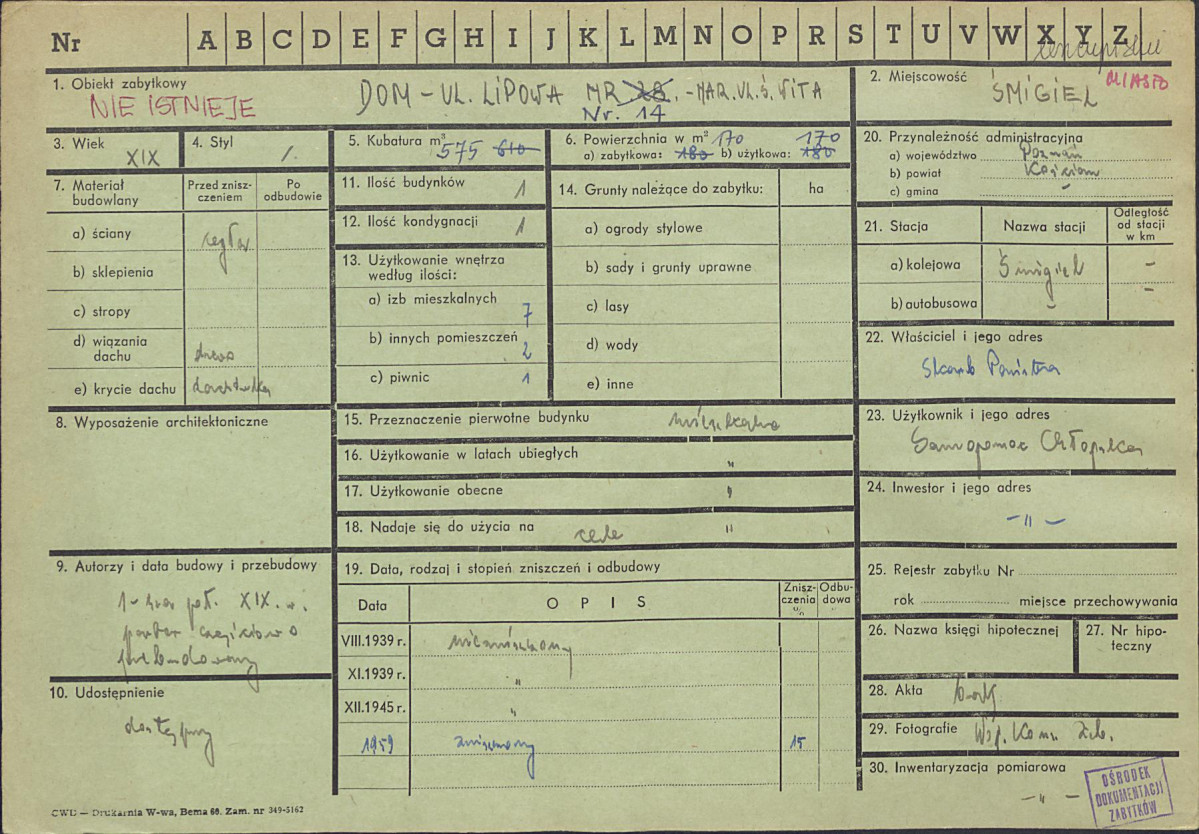 Nr A B C D E F G H I J K L M N O P R S T U V W X Y Z
1. Obiekt zabytkowy
NIE ISTNIEJE
DOM – UL. LIPOWA NR 28. – NAR. UL. Ś. WITA
Nr. 14
2. Miejscowość
ŚMIGIEL MIASTO
3. Wiek
XIX
4. Styl
/.
5. Kubatura m³
575 610
6. Powierzchnia w m² 170 170
a) zabytkowa: 180 b) użytkowa: 180
20. Przynależność administracyjna
a) województwo Poznań
b) powiat Kościan
c) gmina –
7. Materiał budowlany
Przed zniszczeniem
Po odbudowie
a) ściany cegła
b) sklepienia
c) stropy
d) wiązania dachu drewno
e) krycie dachu dachówka
11. Ilość budynków 1
12. Ilość kondygnacji 1
13. Użytkowanie wnętrza
według ilości:
a) izb mieszkalnych 7
b) innych pomieszczeń 2
c) piwnic 1
14. Grunty należące do zabytku: ha
a) ogrody stylowe
b) sady i grunty uprawne
c) lasy
d) wody
e) inne
21. Stacja Nazwa stacji
Odległość
od stacji
w km
a) kolejowa Śmigiel –
b) autobusowa – –
22. Właściciel i jego adres
Skarb Państwa
8. Wyposażenie architektoniczne
15. Przeznaczenie pierwotne budynku mieszkalne
16. Użytkowanie w latach ubiegłych "
17. Użytkowanie obecne "
18. Nadaje się do użycia na cele "
23. Użytkownik i jego adres
Samopomoc Chłopska
24. Inwestor i jego adres
– " –
9. Autorzy i data budowy i przebudowy
1-sza poł. XIX. w.
parter częściowo
przebudowany
19. Data, rodzaj i stopień zniszczeń i odbudowy
Data OPIS
Zniszczenia %
Odbudowa "
VIII.1939 r. niezniszczony
XI.1939 r. "
XII.1945 r. "
1959 zniszczony 15
25. Rejestr zabytku Nr
rok miejsce przechowywania
26. Nazwa księgi hipotecznej
27. Nr hipoteczny
10. Udostępnienie
dostępny
28. Akta brak
29. Fotografie Woj. Kons. Zab.
30. Inwentaryzacja pomiarowa
– " –
OŚRODEK
DOKUMENTACJI
ZABYTKÓW
CWD — Drukarnia W-wa, Bema 60. Zam. nr 349-5162